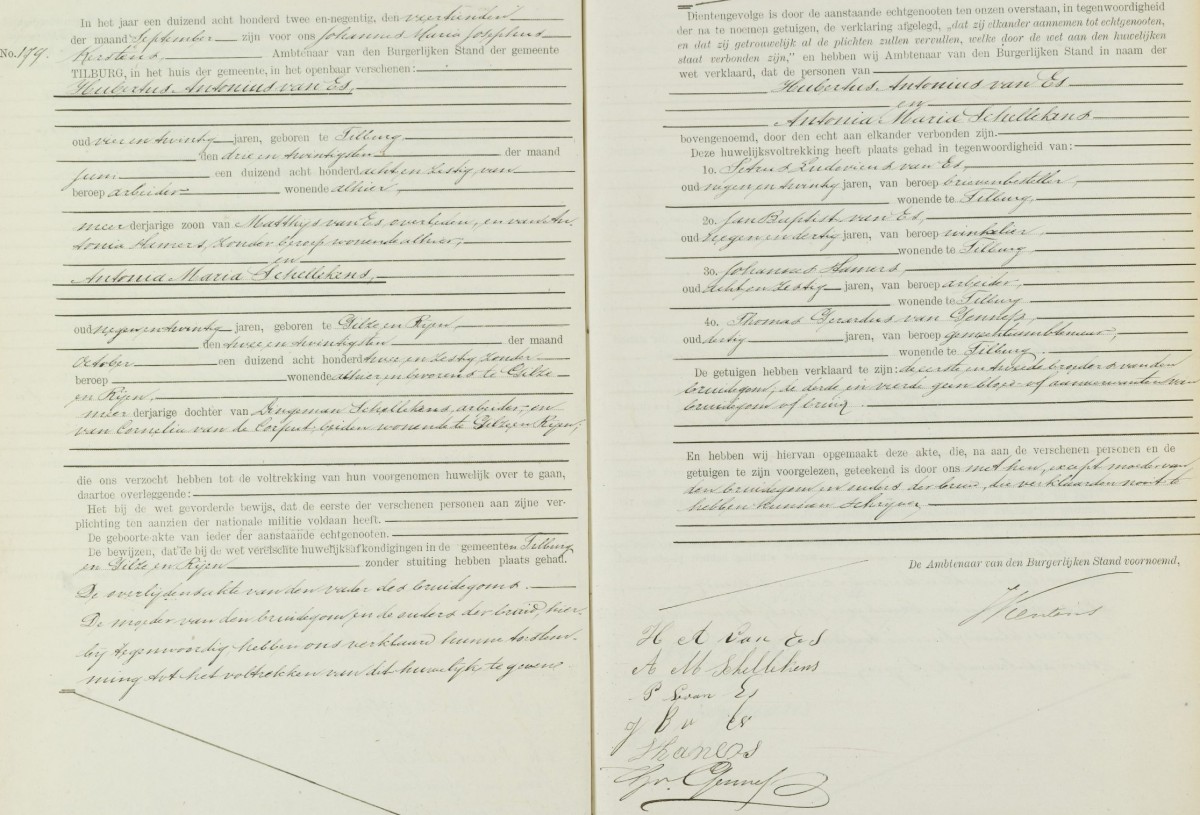 In het jaar een duizend acht honderd twee en-negentig, den veertienden
der maand September zijn voor ons Johannes Maria Josephus
No. 179. Kerstens, Ambtenaar van den Burgerlijken Stand der gemeente
TILBURG, in het huis der gemeente, in het openbaar verschenen:
Hubertus Antonius van Es,
oud vier en twintig jaren, geboren te Tilburg
den drie en twintigsten der maand
Juni een duizend acht honderd acht en zestig, van
beroep arbeider wonende alhier,
meer derjarige zoon van Matthijs van Es, overleden, en van An-
tonia Hamers, zonder beroep wonende alhier,
en
Antonia Maria Schellekens,
oud negen en twintig jaren, geboren te Gilze en Rijen,
den twee en twintigsten der maand
October een duizend acht honderd twee en zestig zonder
beroep wonende alhier en bevorens te Gilze
en Rijen,
meer derjarige dochter van Dingeman Schellekens, arbeider, en
van Cornelia van de Corput, beiden wonende te Gilze en Rijen,
die ons verzocht hebben tot de voltrekking van hun voorgenomen huwelijk over te gaan,
daartoe overleggende:
Het bij de wet gevorderde bewijs, dat de eerste der verschenen personen aan zijne ver-
plichting ten aanzien der nationale militie voldaan heeft.
De geboorte-akte van ieder der aanstaande echtgenooten.
De bewijzen, dat de bij de wet vereischte huwelijksafkondigingen in de gemeenten Tilburg
en Gilze en Rijen zonder stuiting hebben plaats gehad.
De overlijdensakte van den vader des bruidegoms.
De moeder van den bruidegom en de ouders der bruid, hier-
bij tegenwoordig hebben ons verklaard hunne toestem-
ming tot het voltrekken van dit huwelijk te geven
Dientengevolge is door de aanstaande echtgenooten ten onzen overstaan, in tegenwoordigheid
der na te noemen getuigen, de verklaring afgelegd, „dat zij elkander aannemen tot echtgenooten,
en dat zij getrouwelijk al de plichten zullen vervullen, welke door de wet aan den huwelijken
staat verbonden zijn,” en hebben wij Ambtenaar van den Burgerlijken Stand in naam der
wet verklaard, dat de personen van
Hubertus Antonius van Es
en
Antonia Maria Schellekens
bovengenoemd, door den echt aan elkander verbonden zijn.
Deze huwelijksvoltrekking heeft plaats gehad in tegenwoordigheid van:
1o. Petrus Ludovicus van Es,
oud negen en twintig jaren, van beroep brievenbesteller,
wonende te Tilburg,
2o. Jan Baptist van Es,
oud negen en dertig jaren, van beroep winkelier,
wonende te Tilburg
3o. Johannes Hamers,
oud acht en zestig jaren, van beroep arbeider,
wonende te Tilburg
4o. Thomas Gerardus van Gennep,
oud dertig jaren, van beroep gemeenteambtenaar,
wonende te Tilburg.
De getuigen hebben verklaard te zijn: de eerste en tweede broeders van den
bruidegom, de derde en vierde geen bloed- of aanverwanten van
bruidegom of bruid
En hebben wij hiervan opgemaakt deze akte, die, na aan de verschenen personen en de
getuigen te zijn voorgelezen, geteekend is door ons met hen, except moeder van
den bruidegom en ouders der bruid, die verklaarden nooit te
hebben kunnen schrijven
De Ambtenaar van den Burgerlijken Stand voornoemd,
JKerstens
H A van Es
A M Schellekens
P L van Es
J B v Es
J Hamers
Th v. Gennep